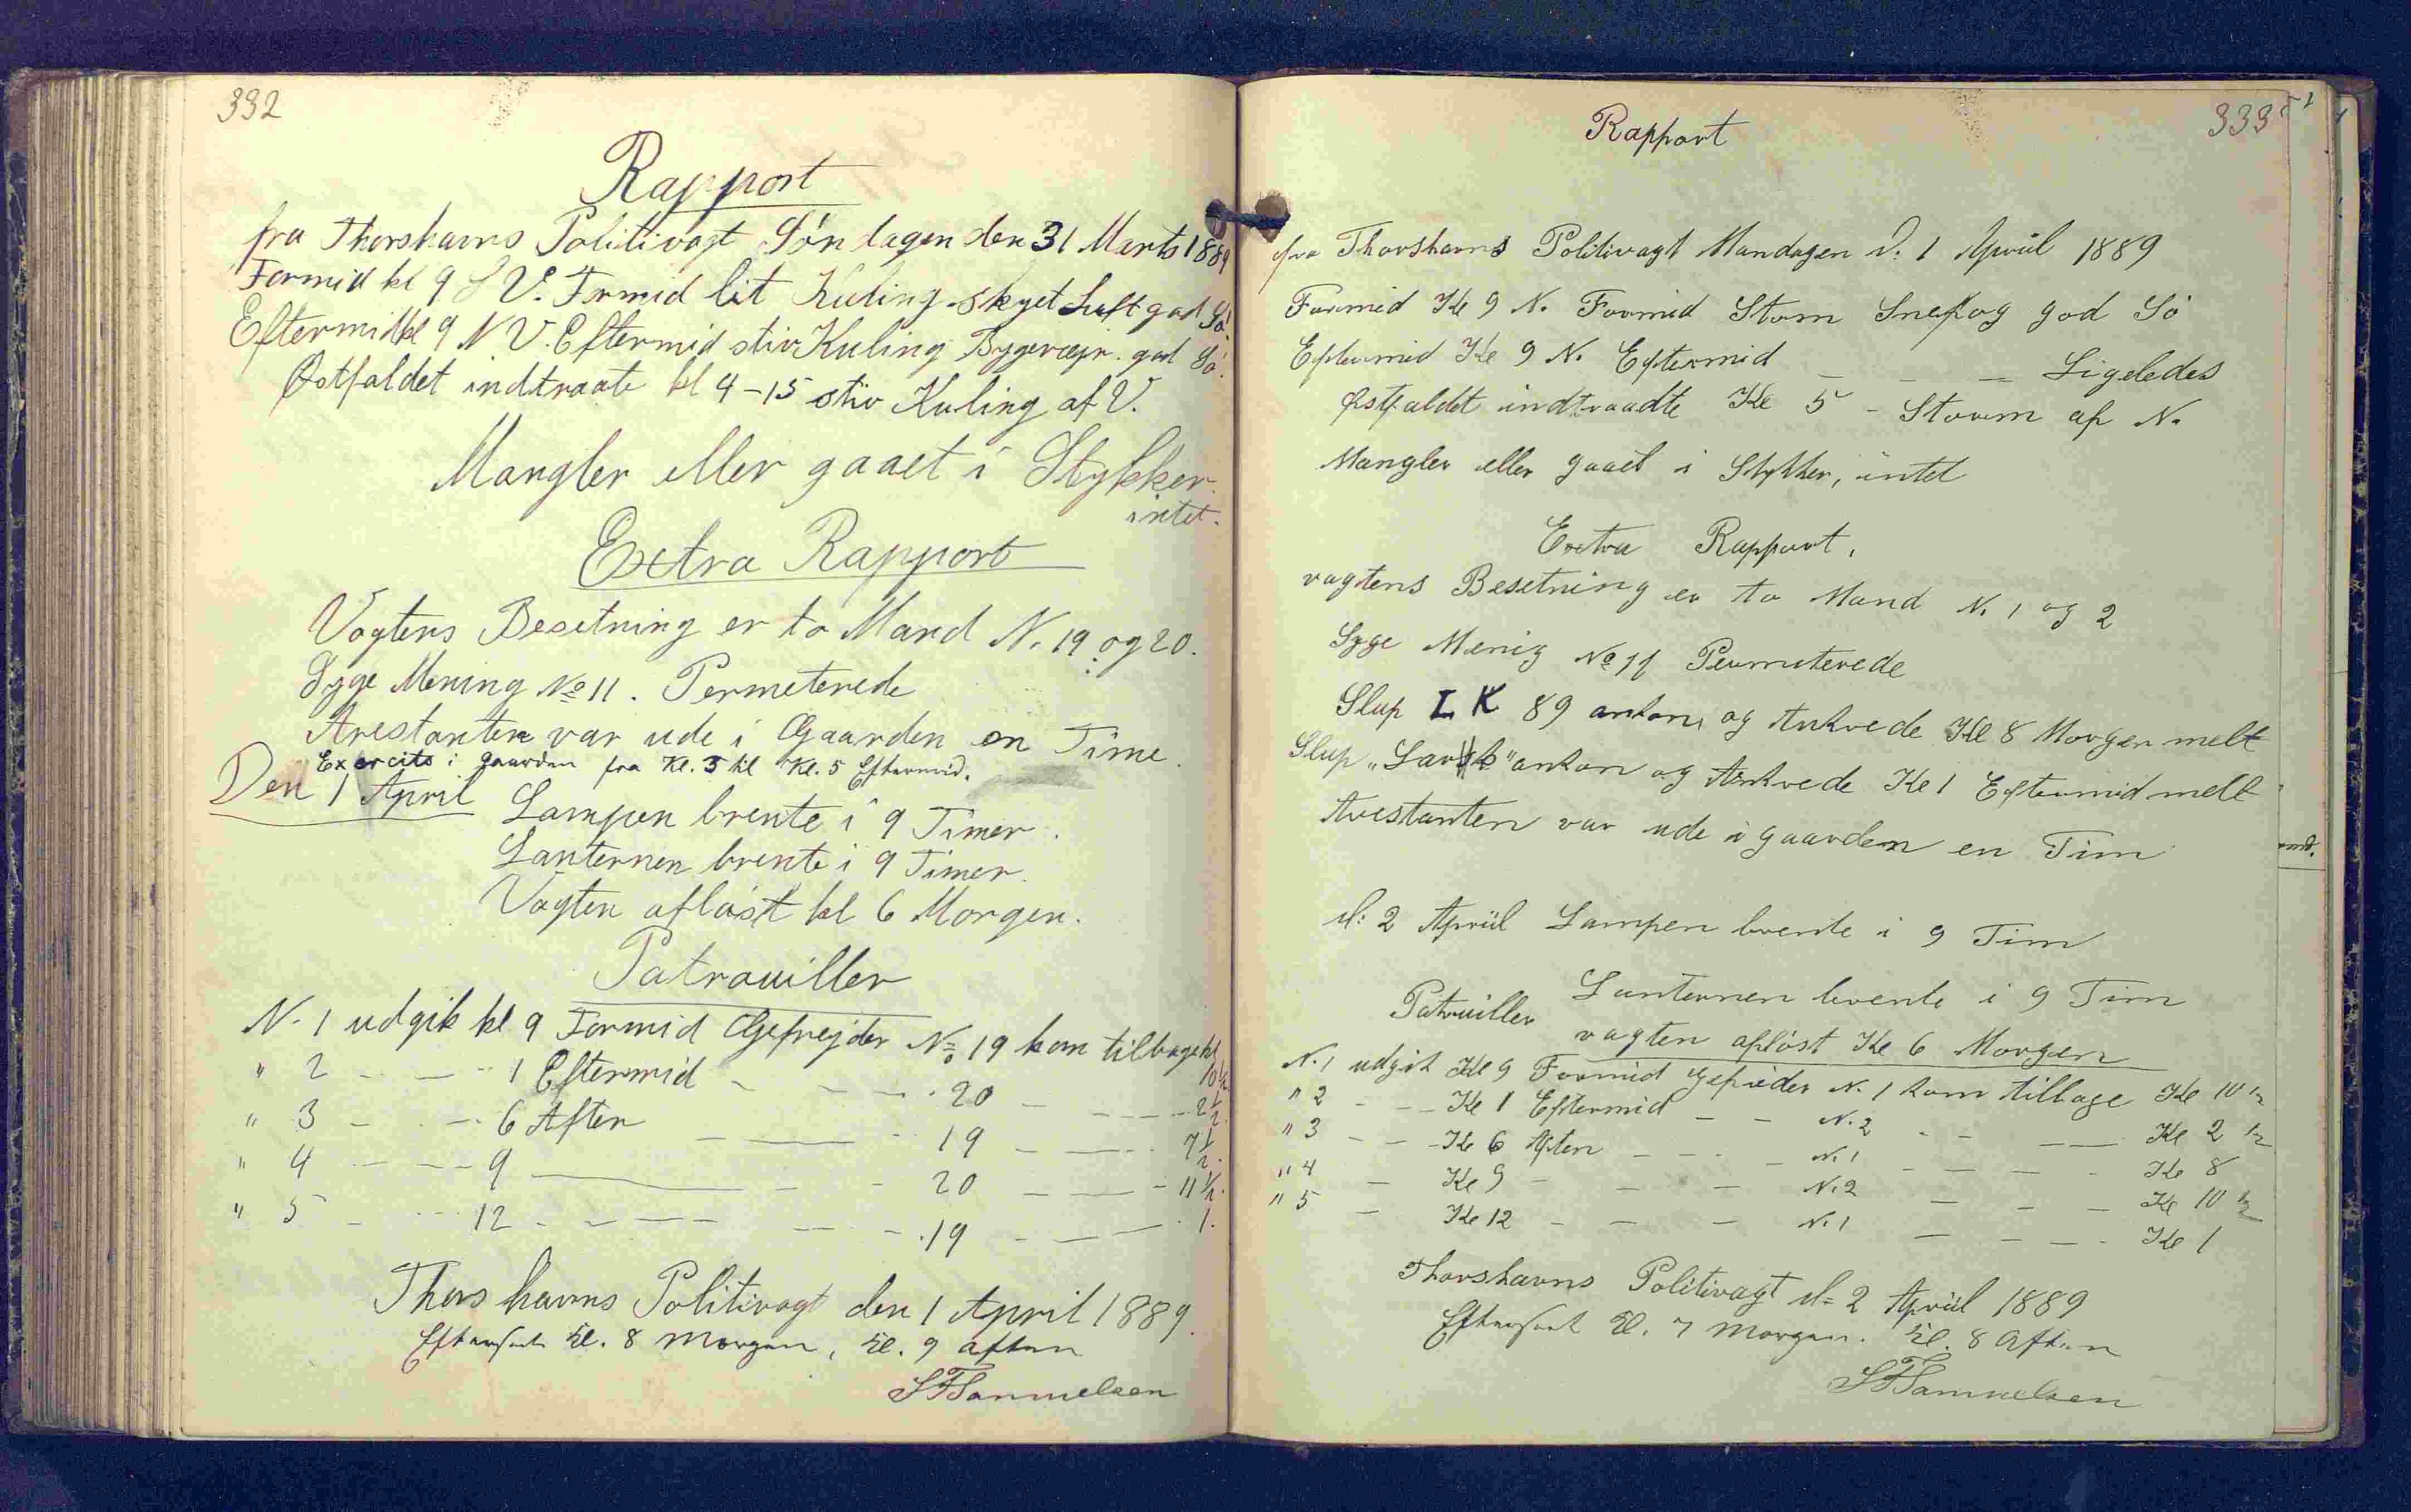 332
Rapport
fra Thorshavns Politivagt Söndagen den 31 Marts 1889
Formid kl 9 S V. Formid lit Kuling skyet Luft god Sö.
Eftermid kl 9 N V. Eftermid stiv Kuling Bygevejr. god Sö.
Östfaldet indtraate kl 4-15 stiv Kuling af V.
Mangler eller gaaet i Stykker.
intet.
Extra Rapport
Vagtens Besetning er to Mand N. 19 og 20.
Syge Mening No 11. Permeterede
Arestanten var ude i Gaarden en Time.
Exercits i Gaarden fra Kl. 3 til Kl. 5 Eftermid.
Den 1 April Lampen brente i 9 Timer.
Lanternen brente i 9 Timer.
Vagten aflöst kl 6 Morgen.
Patrouiller
N. 1 udgik kl 9 Formid Gefrejder No 19 kom tilbage kl 10 1/2
" 2 - - - 1 Eftermid - - - 20 - - - 2 1/2.
" 3 - - - 6 Aften - - - 19 - - - 7 1/2.
" 4 - - - 9 - - - 20 - - - 11 1/2.
" 5 - - - 12 - - - 19 - - - 1.
Thorshavns Politivagt den 1 April 1889.
Efterseet Kl. 8 Morgen, Kl. 9 Aften
SFSamuelsen
333
Rapport
fra Thorshavns Politivagt Mandagen d. 1 April 1889
Formid Kl 9 N. Formid Storm Snefog god Sö
Eftermid Kl 9 N. Eftermid - - - Ligeledes
Östfaldet indtraadte Kl 5 - Storm af N.
Mangler eller gaaet i Stykker, intet
Extra Rapport.
vagtens Besetning er to Mand N. 1 og 2
Syge Menig No 11 Permiterede
Slup LK 89 ankom og Ankrede Kl 8 Morgen melt
Slup ankom og Ankrede Kl 1 Eftermid melt
Arestanten var ude i gaarden en Tim
d: 2 April Lampen brente i 9 Tim
Lanternen brente i 9 Tim
vagten aflöst Kl 6 Morgen
Patruiller
N. 1 udgik Kl 9 Formid Gefreider N. 1 kom tilbage Kl 10 1/2
" 2 - - - Kl 1 Eftermid - - N. 2 - - - Kl 2 1/2
" 3 - - - Kl 6 Aften - - - N. 1 - - - Kl 8
" 4 - Kl 9 - - - N. 2 - - - Kl 10 1/2
" 5 - Kl 12 - - - N. 1 - - - Kl 1
Thorshavns Politivagt d= 2 April 1889
Efterseet Kl. 7 Morgen. Kl. 8 Aften
SFSamuelsen